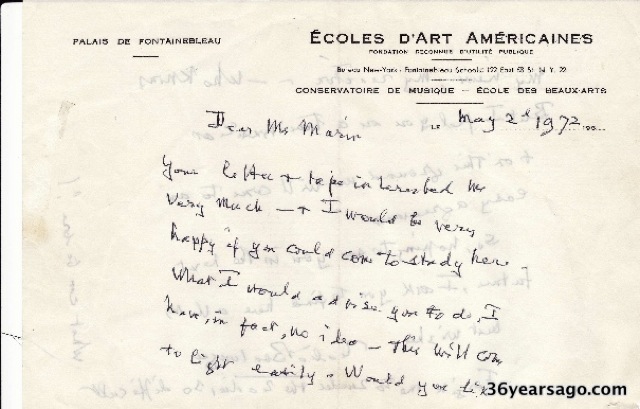 PALAIS DE FONTAINEBLEAU
ÉCOLES D'ART AMÉRICAINES
FONDATION RECONNUE D'UTILITÉ PUBLIQUE
Bureau New-York : Fontainebleau Schools 122 East 58 St. N. Y. 22
CONSERVATOIRE DE MUSIQUE - ÉCOLE DES BEAUX-ARTS
Dear Mr Marin
LE May 2d 1972
Your letter + tape interested me
very much — + I would be very
happy if you could come to study here.
What I would advise you to do, I
have, in fact, no idea — this will come
to light easily. Would you
36yearsago.com